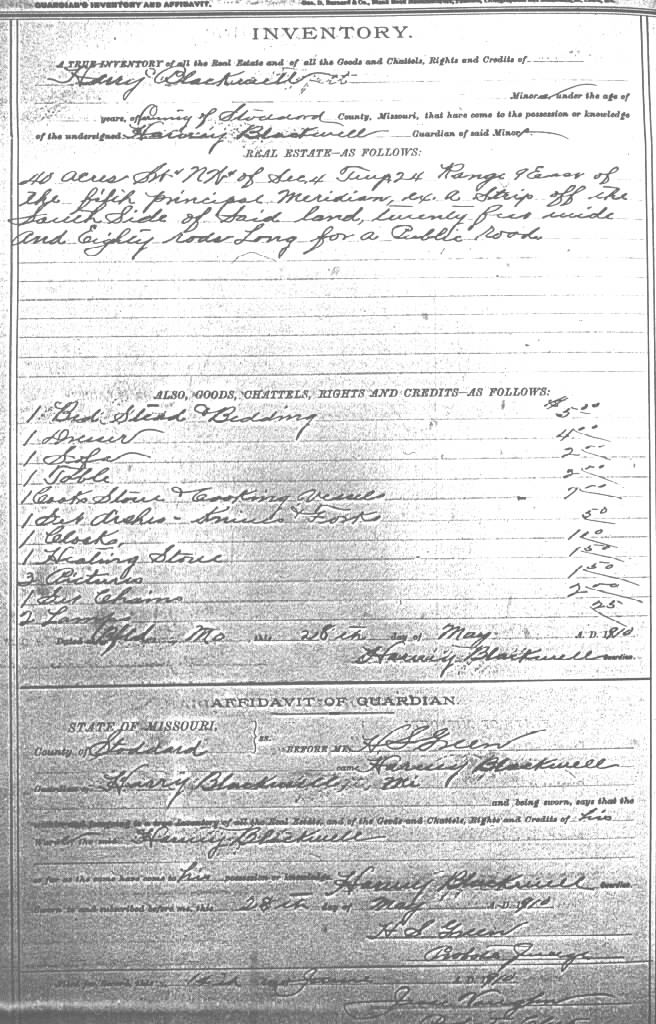 GUARDIAN'S INVENTORY AND AFFIDAVIT.
INVENTORY.
A TRUE INVENTORY of all the Real Estate and of all the Goods and Chattels, Rights and Credits of
Harry Blackwell
Minor under the age of
years, of County of Stoddard County, Missouri, that have come to the possession or knowledge
of the undersigned Harvey Blackwell Guardian of said Minor
REAL ESTATE—AS FOLLOWS:
40 acres of Sec 4 Twp 24 Range 9 East of
the fifth principal Meridian, ex. a Strip off the
South Side of Said land, twenty feet wide
and Eighty rods Long for a Public road
ALSO, GOODS, CHATTELS, RIGHTS AND CREDITS—AS FOLLOWS:
1 Bed Stead & Bedding $ 5.00
1 Dresser 4.00
1 Sofa 2.00
1 Table 2.00
1 Cook Stove & Cooking Vessels 7.00
1 Set dishes - Knives & Forks 50
1 Clock
1 Heating Stove 1.50
3 Pictures 1.50
1 Set Chairs 2.00
2 Lamps 25
Dated Mo this 28th day of May A. D. 1910
Harvey Blackwell
AFFIDAVIT OF GUARDIAN.
STATE OF MISSOURI,
County of Stoddard ss. BEFORE ME, H S Green
came Harvey Blackwell
Guardian of Harry Blackwell
and being sworn, says that the
is a true inventory of all the Real Estate, and of the Goods and Chattels, Rights and Credits of his
Ward Harvey Blackwell
so far as the same have come to his possession or knowledge. Harvey Blackwell
Sworn to and subscribed before me, this 28th day of May A. D. 1910
H S Green
Probate Judge
Filed for Record, this day June A. D. 1910